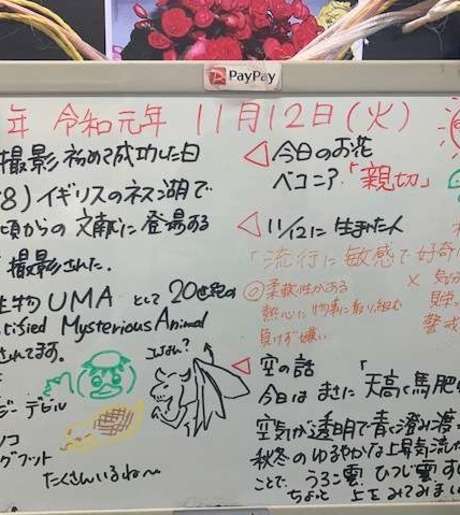 PayPay
年 令和元年 11月12日(火)
撮影初めて成功した日
8)イギリスのネス湖で
頃からの文献に登場する
撮影された.
生物UMA として 20世紀の
tified Mysterious Animal
されてます.
コワイ?
ジーデビル
ノコ
グフット
たくさんいるね〜
◁今日のお花
ベコニア「親切」
◁11/12に生まれた人
「流行に敏感で好奇
◎柔軟性がある
熱心に物事に取り組む
負けず嫌い
×
警戒
◁空の話
今日はまさに「天高く馬肥
空気が透明で青く澄み渡
秋冬のゆるやかな上昇気流
ことで、うろこ雲、ひつじ雲
ちょっと上をみてみま